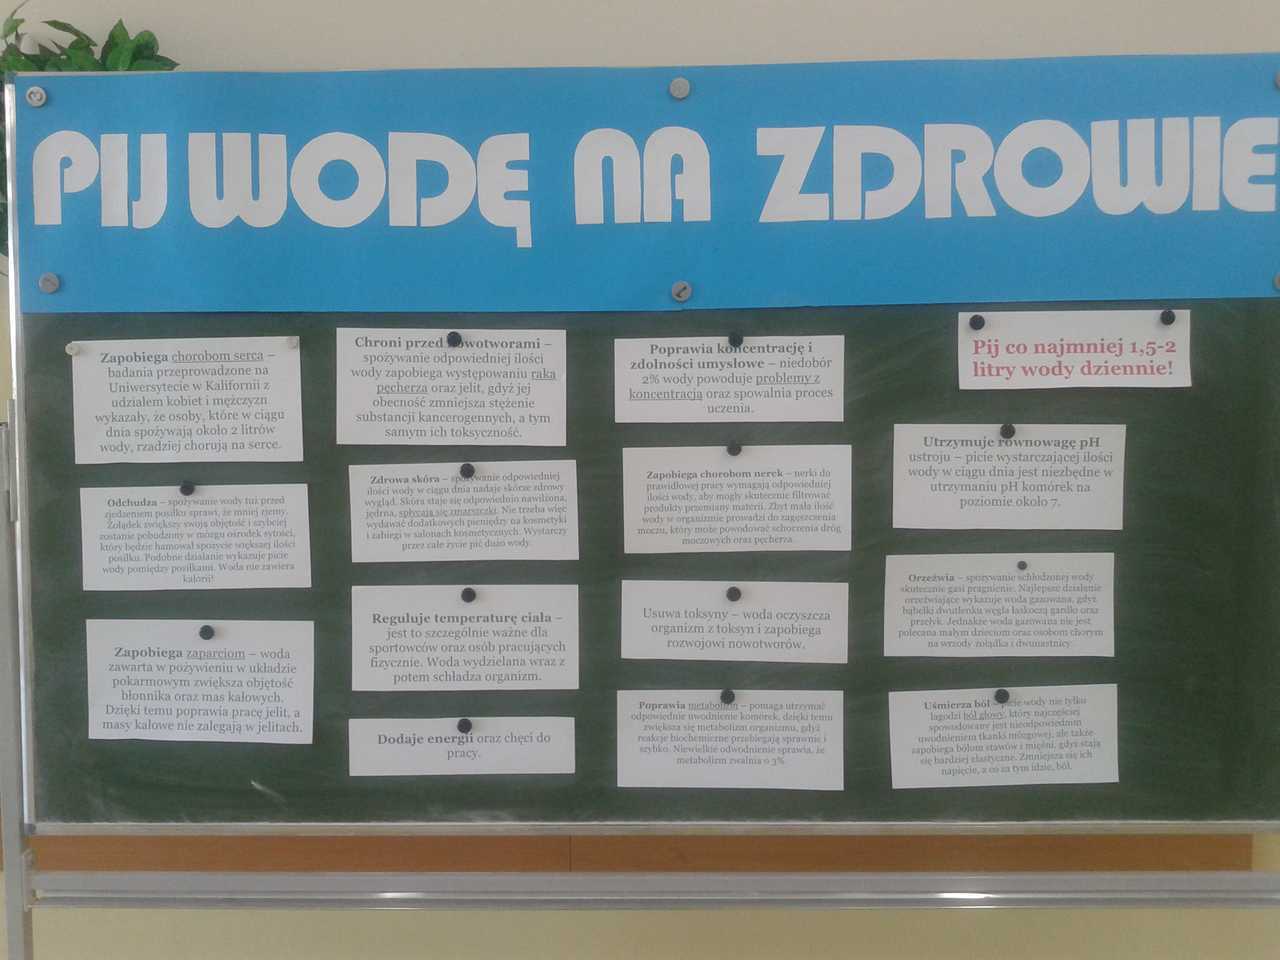 PIJ WODĘ NA ZDROWIE
Zapobiega chorobom serca –
badania przeprowadzone na
Uniwersytecie w Kalifornii z
udziałem kobiet i mężczyzn
wykazały, że osoby, które w ciągu
dnia spożywają około 2 litrów
wody, rzadziej chorują na serce.
Odchudza – spożywanie wody tuż przed
zjedzeniem posiłku sprawi, że mniej zjemy.
Żołądek zwiększy swoją objętość i szybciej
zostanie pobudzony w mózgu ośrodek sytości,
który będzie hamował spożycie większej ilości
posiłku. Podobne działanie wykazuje picie
wody pomiędzy posiłkami. Woda nie zawiera
kalorii!
Zapobiega zaparciom – woda
zawarta w pożywieniu w układzie
pokarmowym zwiększa objętość
błonnika oraz mas kałowych.
Dzięki temu poprawia pracę jelit, a
masy kałowe nie zalegają w jelitach.
Chroni przed nowotworami –
spożywanie odpowiedniej ilości
wody zapobiega występowaniu raka
pęcherza oraz jelit, gdyż jej
obecność zmniejsza stężenie
substancji kancerogennych, a tym
samym ich toksyczność.
Zdrowa skóra – spożywanie odpowiedniej
ilości wody w ciągu dnia nadaje skórze zdrowy
wygląd. Skóra staje się odpowiednio nawilżona,
jędrna, spłycają się zmarszczki. Nie trzeba więc
wydawać dodatkowych pieniędzy na kosmetyki
i zabiegi w salonach kosmetycznych. Wystarczy
przez całe życie pić dużo wody.
Reguluje temperaturę ciała –
jest to szczególnie ważne dla
sportowców oraz osób pracujących
fizycznie. Woda wydzielana wraz z
potem schładza organizm.
Dodaje energii oraz chęci do
pracy.
Poprawia koncentrację i
zdolności umysłowe – niedobór
2% wody powoduje problemy z
koncentracją oraz spowalnia proces
uczenia.
Zapobiega chorobom nerek – nerki do
prawidłowej pracy wymagają odpowiedniej
ilości wody, aby mogły skutecznie filtrować
produkty przemiany materii. Zbyt mała ilość
wody w organizmie prowadzi do zagęszczenia
moczu, który może powodować schorzenia dróg
moczowych oraz pęcherza.
Usuwa toksyny – woda oczyszcza
organizm z toksyn i zapobiega
rozwojowi nowotworów.
Poprawia metabolizm – pomaga utrzymać
odpowiednie uwodnienie komórek, dzięki temu
zwiększa się metabolizm organizmu, gdyż
reakcje biochemiczne przebiegają sprawnie i
szybko. Niewielkie odwodnienie sprawia, że
metabolizm zwalnia o 3%.
Pij co najmniej 1,5-2
litry wody dziennie!
Utrzymuje równowagę pH
ustroju – picie wystarczającej ilości
wody w ciągu dnia jest niezbędne w
utrzymaniu pH komórek na
poziomie około 7.
Orzeźwia – spożywanie schłodzonej wody
skutecznie gasi pragnienie. Najlepsze działanie
orzeźwiające wykazuje woda gazowana, gdyż
bąbelki dwutlenku węgla łaskoczą gardło oraz
przełyk. Jednakże woda gazowana nie jest
polecana małym dzieciom oraz osobom chorym
na wrzody żołądka i dwunastnicy.
Uśmierza ból – picie wody nie tylko
łagodzi ból głowy, który najczęściej
spowodowany jest nieodpowiednim
uwodnieniem tkanki mózgowej, ale także
zapobiega bólom stawów i mięśni, gdyż stają
się bardziej elastyczne. Zmniejsza się ich
napięcie, a co za tym idzie, ból.